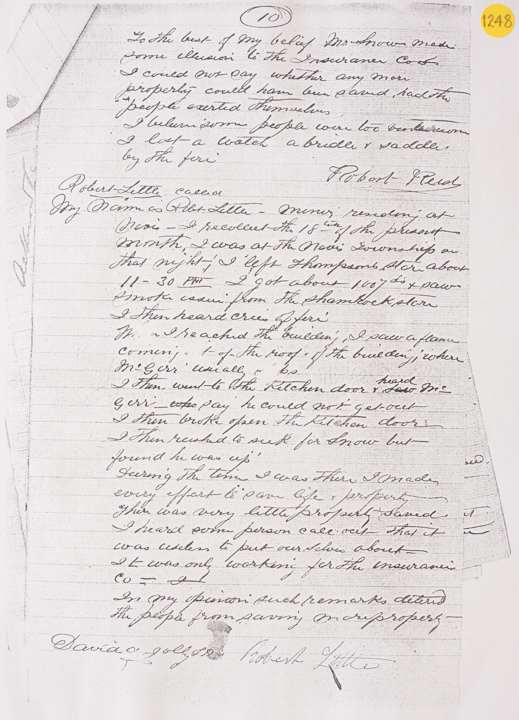 10
1248
To the best of my belief Mr Snow made
some illusion to the Insurance Co
I could not say whether any more
property could have been saved, had the
people exerted themselves.
I believe some people were too
I lost a watch a bridle & saddle
by the fire
Robert Reid
Robert Little called
My Name is Robt Little - miner residing at
Nevis - I recollect the 18th of the present
month, I was at the Nevis Township on
that night, I left Thompsons store about
11-30 PM I got about 100 yds & saw
smoke issue from the Shamrock store
I then heard cries of fire
I reached the building, I saw a flame
coming out of the roof of the building where
McGirr usually
I then went to the kitchen door & heard Mc
Girr say he could not get out
I then broke open the kitchen door
I then rushed to seek for Snow but
found he was up
During the time I was there I made
every effort to save life & property
There was very little property saved
I heard some person call out that it
was useless to put ourselves about -
It was only working for the insurance
Co -
In my opinion such remarks detered
the people from saving more property
David Robert Little